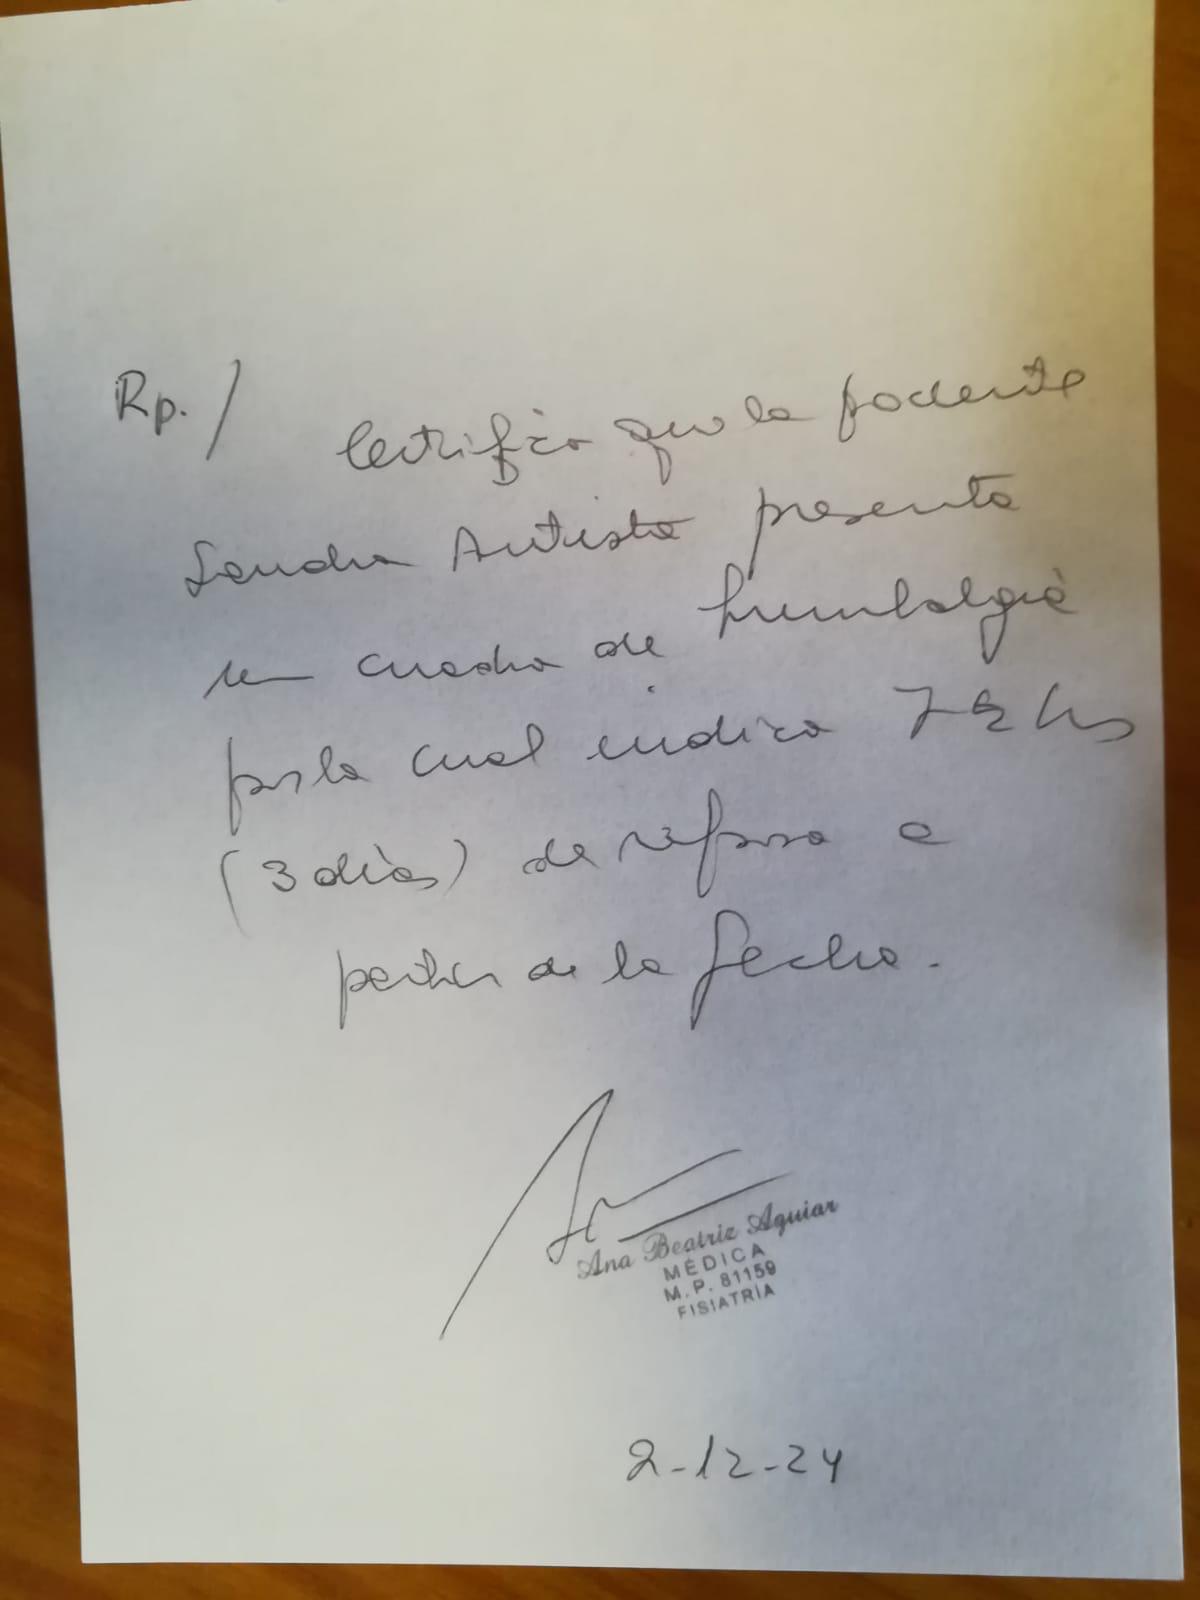 Rp./ Certifico que la paciente
Sandra Autista presenta
un cuadro de lumbalgia
por lo cual indico 72 hs
(3 días) de reposo a
partir de la fecha.
Ana Beatriz Aguiar
MÉDICA
M.P. 81159
FISIATRÍA
2-12-24